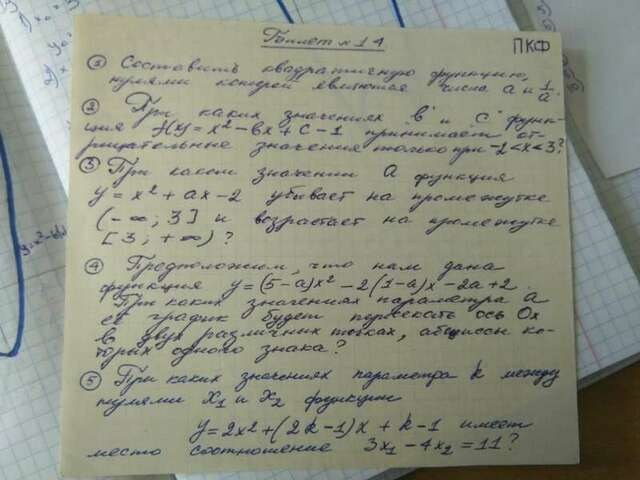 Билет № 14
ПКФ
① Составить квадратичную функцию,
нулями которой являются числа a и 1/a.
② При каких значениях "b" и "c" функ-
ция f(x) = x² - bx + c - 1 принимает от-
рицательные значения только при -2 < x < 3?
③ При каком значении a функция
y = x² + ax - 2 убывает на промежутке
(-∞; 3] и возрастает на промежутке
[3; +∞)?
④ Предположим, что нам дана
функция y = (5-a)x² - 2(1-a)x - 2a + 2.
При каких значениях параметра a
её график будет пересекать ось Ox
в двух различных точках, абсциссы ко-
торых одного знака?
⑤ При каких значениях параметра k между
нулями x₁ и x₂ функции
y = 2x² + (2k-1)x + k - 1 имеет
место соотношение 3x₁ - 4x₂ = 11?